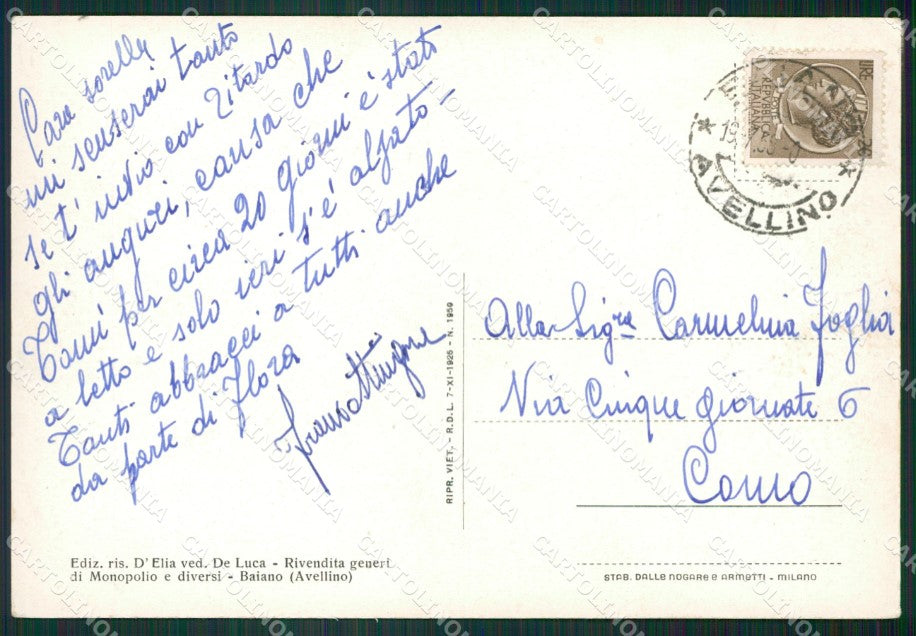 Cara sorella
mi scuserai tanto
se t' invio con ritardo
gli auguri, causa che
Tomì per circa 20 giorni è stato
a letto e solo ieri s'è alzato -
Tanti abbracci a tutti anche
da parte di Flora
RIPR. VIET. - R.D.L. 7-XI-1925 - N. 1959
AVELLINO
Alla Sigra Carmelina Foglia
Via Cinque giornate 6
Como
Ediz. ris. D'Elia ved. De Luca - Rivendita generi
di Monopolio e diversi - Baiano (Avellino)
STAB. DALLE NOGARE e ARMETTI - MILANO
CARTOLINOMANIA